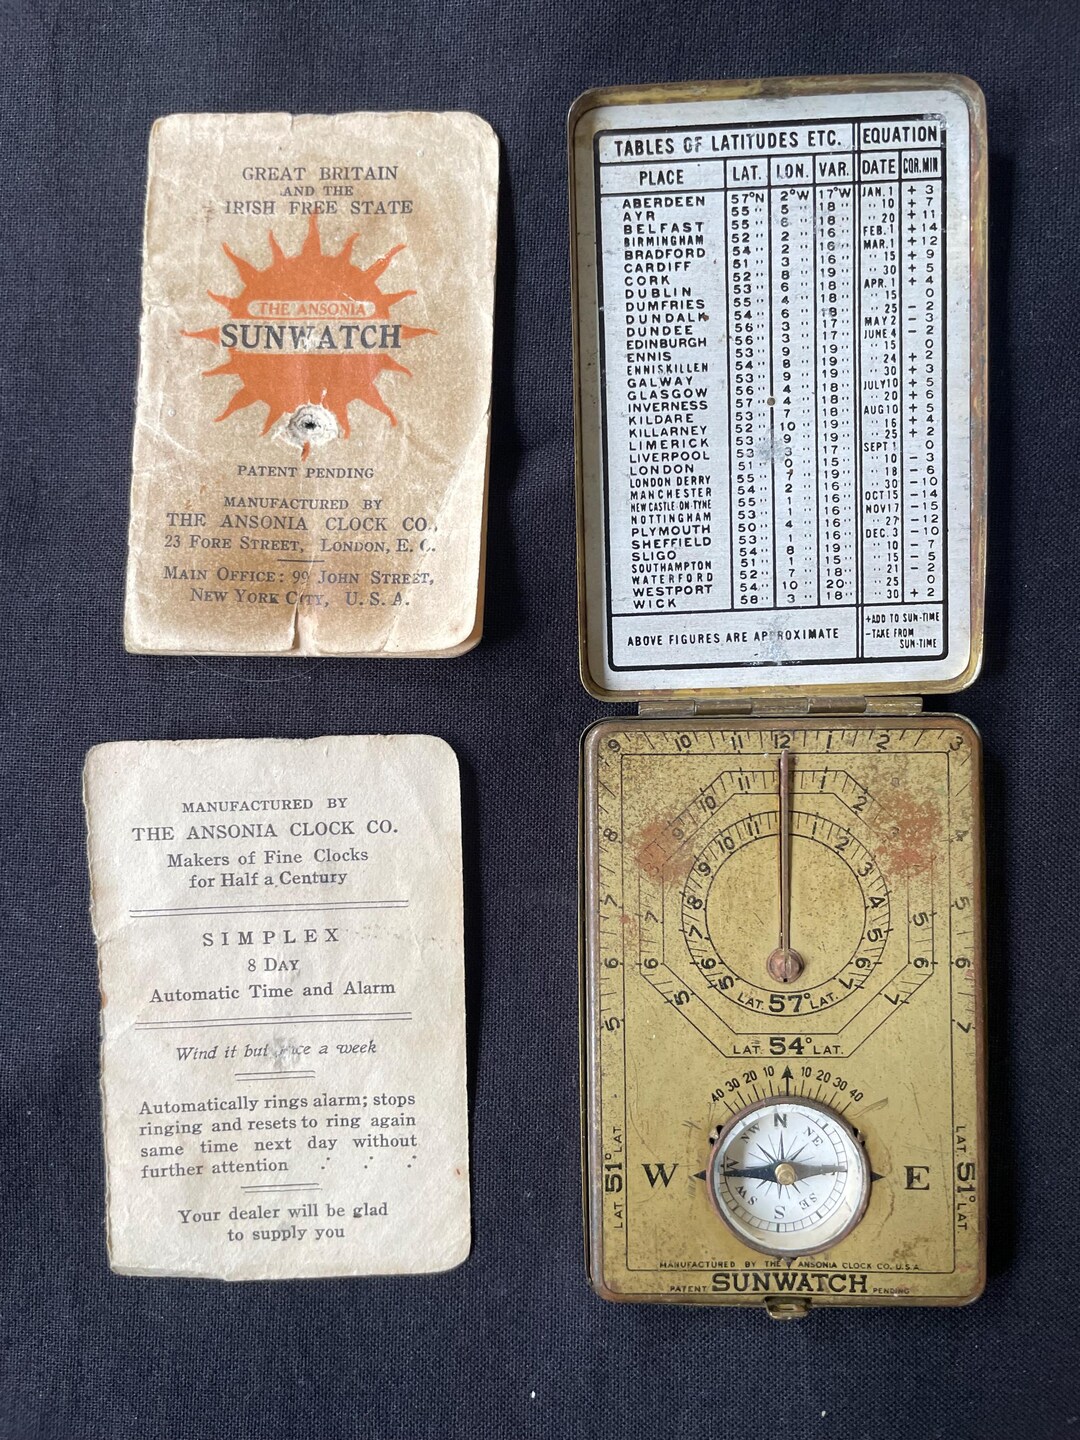 GREAT BRITAIN
AND THE
IRISH FREE STATE
THE ANSONIA
SUNWATCH
PATENT PENDING
MANUFACTURED BY
THE ANSONIA CLOCK CO.,
23 FORE STREET, LONDON, E. C.
MAIN OFFICE: 99 JOHN STREET,
NEW YORK CITY, U. S. A.
TABLES OF LATITUDES ETC. EQUATION
PLACE LAT. LON. VAR. DATE COR.MIN
ABERDEEN 57°N 2°W 17°W JAN.1 + 3
AYR 55 " 5 " 18 " " 10 + 7
BELFAST 55 " 6 " 18 " " 20 + 11
BIRMINGHAM 52 " 2 " 16 " FEB.1 + 14
BRADFORD 54 " 2 " 16 " MAR.1 + 12
CARDIFF 51 " 3 " 16 " " 15 + 9
CORK 52 " 8 " 19 " " 30 + 5
DUBLIN 53 " 6 " 18 " APR.1 + 4
DUMFRIES 55 " 4 " 18 " " 15 0
DUNDALK 54 " 6 " 18 " " 25 - 2
DUNDEE 56 " 3 " 17 " MAY 2 - 3
EDINBURGH 56 " 3 " 17 " JUNE 4 - 2
ENNIS 53 " 9 " 19 " " 15 0
ENNISKILLEN 54 " 8 " 19 " " 24 + 2
GALWAY 53 " 9 " 19 " " 30 + 3
GLASGOW 56 " 4 " 18 " JULY10 + 5
INVERNESS 57 " 4 " 18 " " 20 + 6
KILDARE 53 " 7 " 18 " AUG10 + 5
KILLARNEY 52 " 10 " 19 " " 16 + 4
LIMERICK 53 " 9 " 19 " " 25 + 2
LIVERPOOL 53 " 3 " 17 " SEPT 1 0
LONDON 51 " 0 " 15 " " 10 - 3
LONDON DERRY 55 " 7 " 19 " " 18 - 6
MANCHESTER 54 " 2 " 16 " " 30 -10
NEW CASTLE-ON-TYNE 55 " 1 " 16 " OCT15 -14
NOTTINGHAM 53 " 1 " 16 " NOV17 -15
PLYMOUTH 50 " 4 " 16 " " 27 -12
SHEFFIELD 53 " 1 " 16 " DEC. 3 -10
SLIGO 54 " 8 " 19 " " 10 - 7
SOUTHAMPTON 51 " 1 " 15 " " 15 - 5
WATERFORD 52 " 7 " 18 " " 21 - 2
WESTPORT 54 " 10 " 20 " " 25 0
WICK 58 " 3 " 18 " " 30 + 2
ABOVE FIGURES ARE APPROXIMATE
+ADD TO SUN-TIME
-TAKE FROM
SUN-TIME
MANUFACTURED BY
THE ANSONIA CLOCK CO.
Makers of Fine Clocks
for Half a Century
SIMPLEX
8 DAY
Automatic Time and Alarm
Wind it but once a week
Automatically rings alarm; stops
ringing and resets to ring again
same time next day without
further attention
Your dealer will be glad
to supply you
9 10 11 12 1 2 3
8 4
7 5
6 6
5 7
10 11 1 2
9
7 5
6 6
5 7
10 11 1 2
9 3
8 4
7 5
6 6
5 7
LAT. 57° LAT.
LAT. 54° LAT.
40 30 20 10 10 20 30 40
N
NW NE
W E
W
SW SE
S
LAT. 51° LAT.
LAT. 51° LAT.
MANUFACTURED BY THE ANSONIA CLOCK CO. U.S.A.
PATENT SUNWATCH PENDING